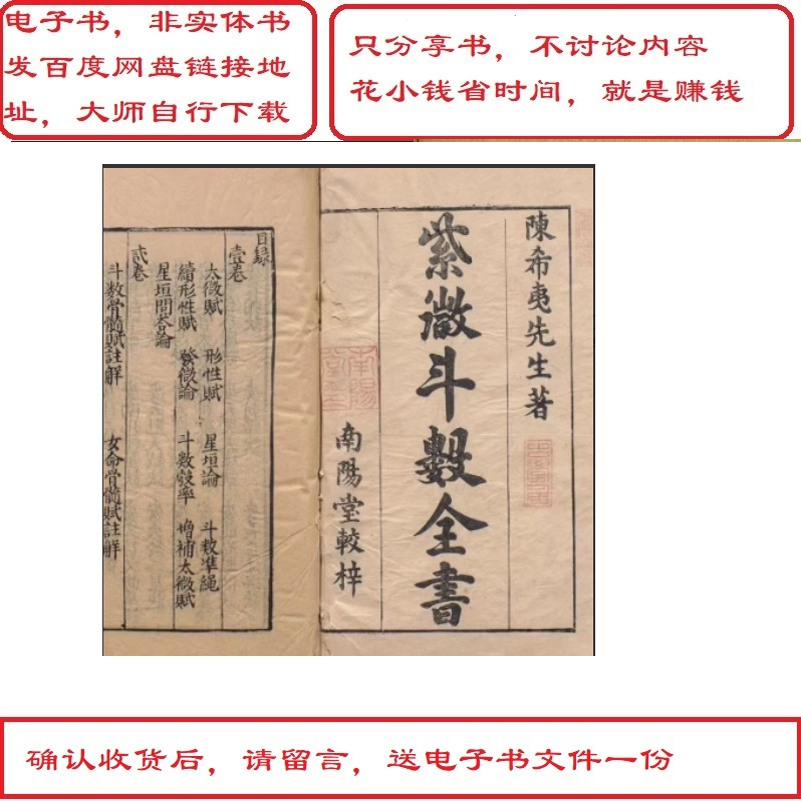 电子书，非实体书
发百度网盘链接地
址，大师自行下载
只分享书，不讨论内容
花小钱省时间，就是赚钱
陳希夷先生著
紫微斗數全書
南陽堂較梓
南陽
目録
壹卷
太微賦　形性賦　星垣論　斗数準繩
續形性賦　發微論　斗数彀率　增補太微賦
星垣問荅論
貳卷
斗数骨髓賦註解　女命骨髓賦註解
确认收货后，请留言，送电子书文件一份